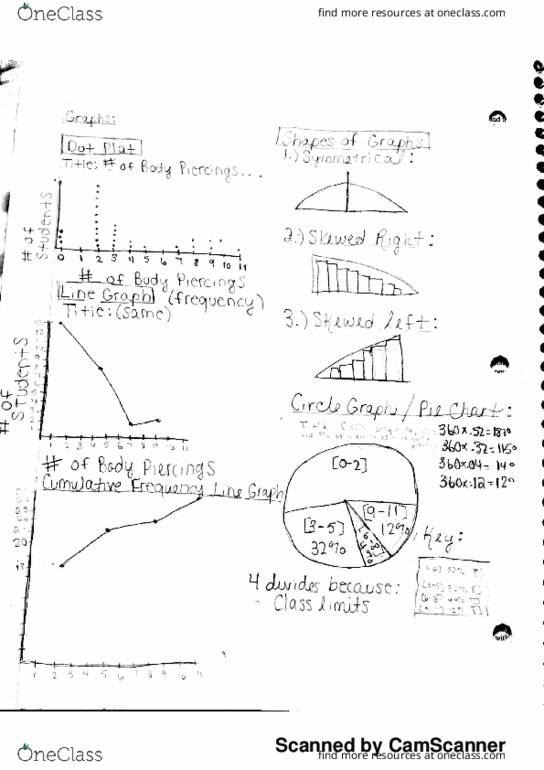 OneClass
find more resources at oneclass.com
Graphs:
Dot Plot
Title: # of Body Piercings...
# of Students
0 1 2 3 4 5 6 7 8 9 10 11
# of Body Piercings
Line Graph (frequency)
Title: (same)
# of Students
1 2 3 4 5 6 7 8 9 10 11
# of Body Piercings
Cumulative Frequency Line Graph
20
13
1 2 3 4 5 6 7 8 9 10 11
Shapes of Graphs
1.) Symmetrical:
2.) Skewed Right:
3.) Skewed left:
Circle Graph / Pie Chart:
360x.52=187°
360x.32=115°
360x.04=14°
360x.12=12°
[0-2]
[9-11]
12%
[3-5]
32%
Key:
4 divides because:
- Class limits
Scanned by CamScanner
OneClass
find more resources at oneclass.com